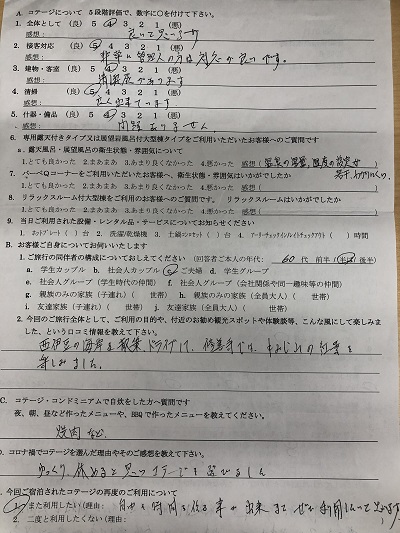 A. コテージについて 5段階評価で、数字に○を付けて下さい。
1. 全体として (良) 5 4 3 2 1 (悪)
感想：良いと思います
2. 接客対応 (良) 5 4 3 2 1 (悪)
感想：非常に管理人の方は対応が良いです。
3. 建物・客室 (良) 5 4 3 2 1 (悪)
感想：清潔感があります
4. 清掃 (良) 5 4 3 2 1 (悪)
感想：良く出来ています
5. 什器・備品 (良) 5 4 3 2 1 (悪)
感想：問題ありません
6. 専用露天付きタイプ又は展望岩風呂付大型棟タイプをご利用いただいたお客様へのご質問です
a. 露天風呂・展望風呂の衛生状態・雰囲気について
1.とても良かった 2.まあまあ 3.あまり良くなかった 4.悪かった 感想（
7. バーベQコーナーをご利用いただいたお客様へ、衛生状態・雰囲気はいかがでしたか
1.とても良かった 2.まあまあ 3.あまり良くなかった 4.悪かった 感想（ ）
8. リラックスルーム付大型棟をご利用のお客様へのご質問です。 リラックスルームはいかがでしたか
1.とても良かった 2.まあまあ 3.あまり良くなかった 4.悪かった 感想（ ）
9. 当日ご利用された設備・レンタル品・サービスについてお知らせください
1. ホットプレート（ ）台 2. 洗濯/乾燥機 3. 土鍋コンロセット（ ）台 4. アーリーチェックイン/レイトチェックアウト（ ）時間
B. お客様ご自身についてお伺いいたします
1. ご旅行の同伴者の構成についておしえてください（回答者ご本人の年代： 60代 前半 中ば 後半）
a. 学生カップル b. 社会人カップル c. ご夫婦 d. 学生グループ
e. 社会人グループ（学生時代の仲間） f. 社会人グループ（会社関係や同一趣味等の仲間）
g. 親族のみの家族（子連れ）（ 世帯） h. 親族のみの家族（全員大人）（ 世帯）
i. 友達家族（子連れ）（ 世帯） j. 友達家族（全員大人）（ 世帯）
2. 今回のご旅行全体として、ご利用の目的や、付近のお勧め観光スポットや体験談等、こんな風にして楽しみま
した、という口コミ情報を教えて下さい。
西伊豆の海岸を散策ドライブし、修善寺では、もみじの紅葉を
楽しみました。
C. コテージ・コンドミニアムで自炊をした方へ質問です
夜、朝、昼など作ったメニューや、BBQで作ったメニューを教えてください。
焼肉など
D. コロナ禍でコテージを選んだ理由やそのご感想を教えて下さい。
ゆっくり、休めると思いコテージを選びました
今回ご宿泊されたコテージの再度のご利用について
1. また利用したい（理由：
2. 二度と利用したくない（理由：